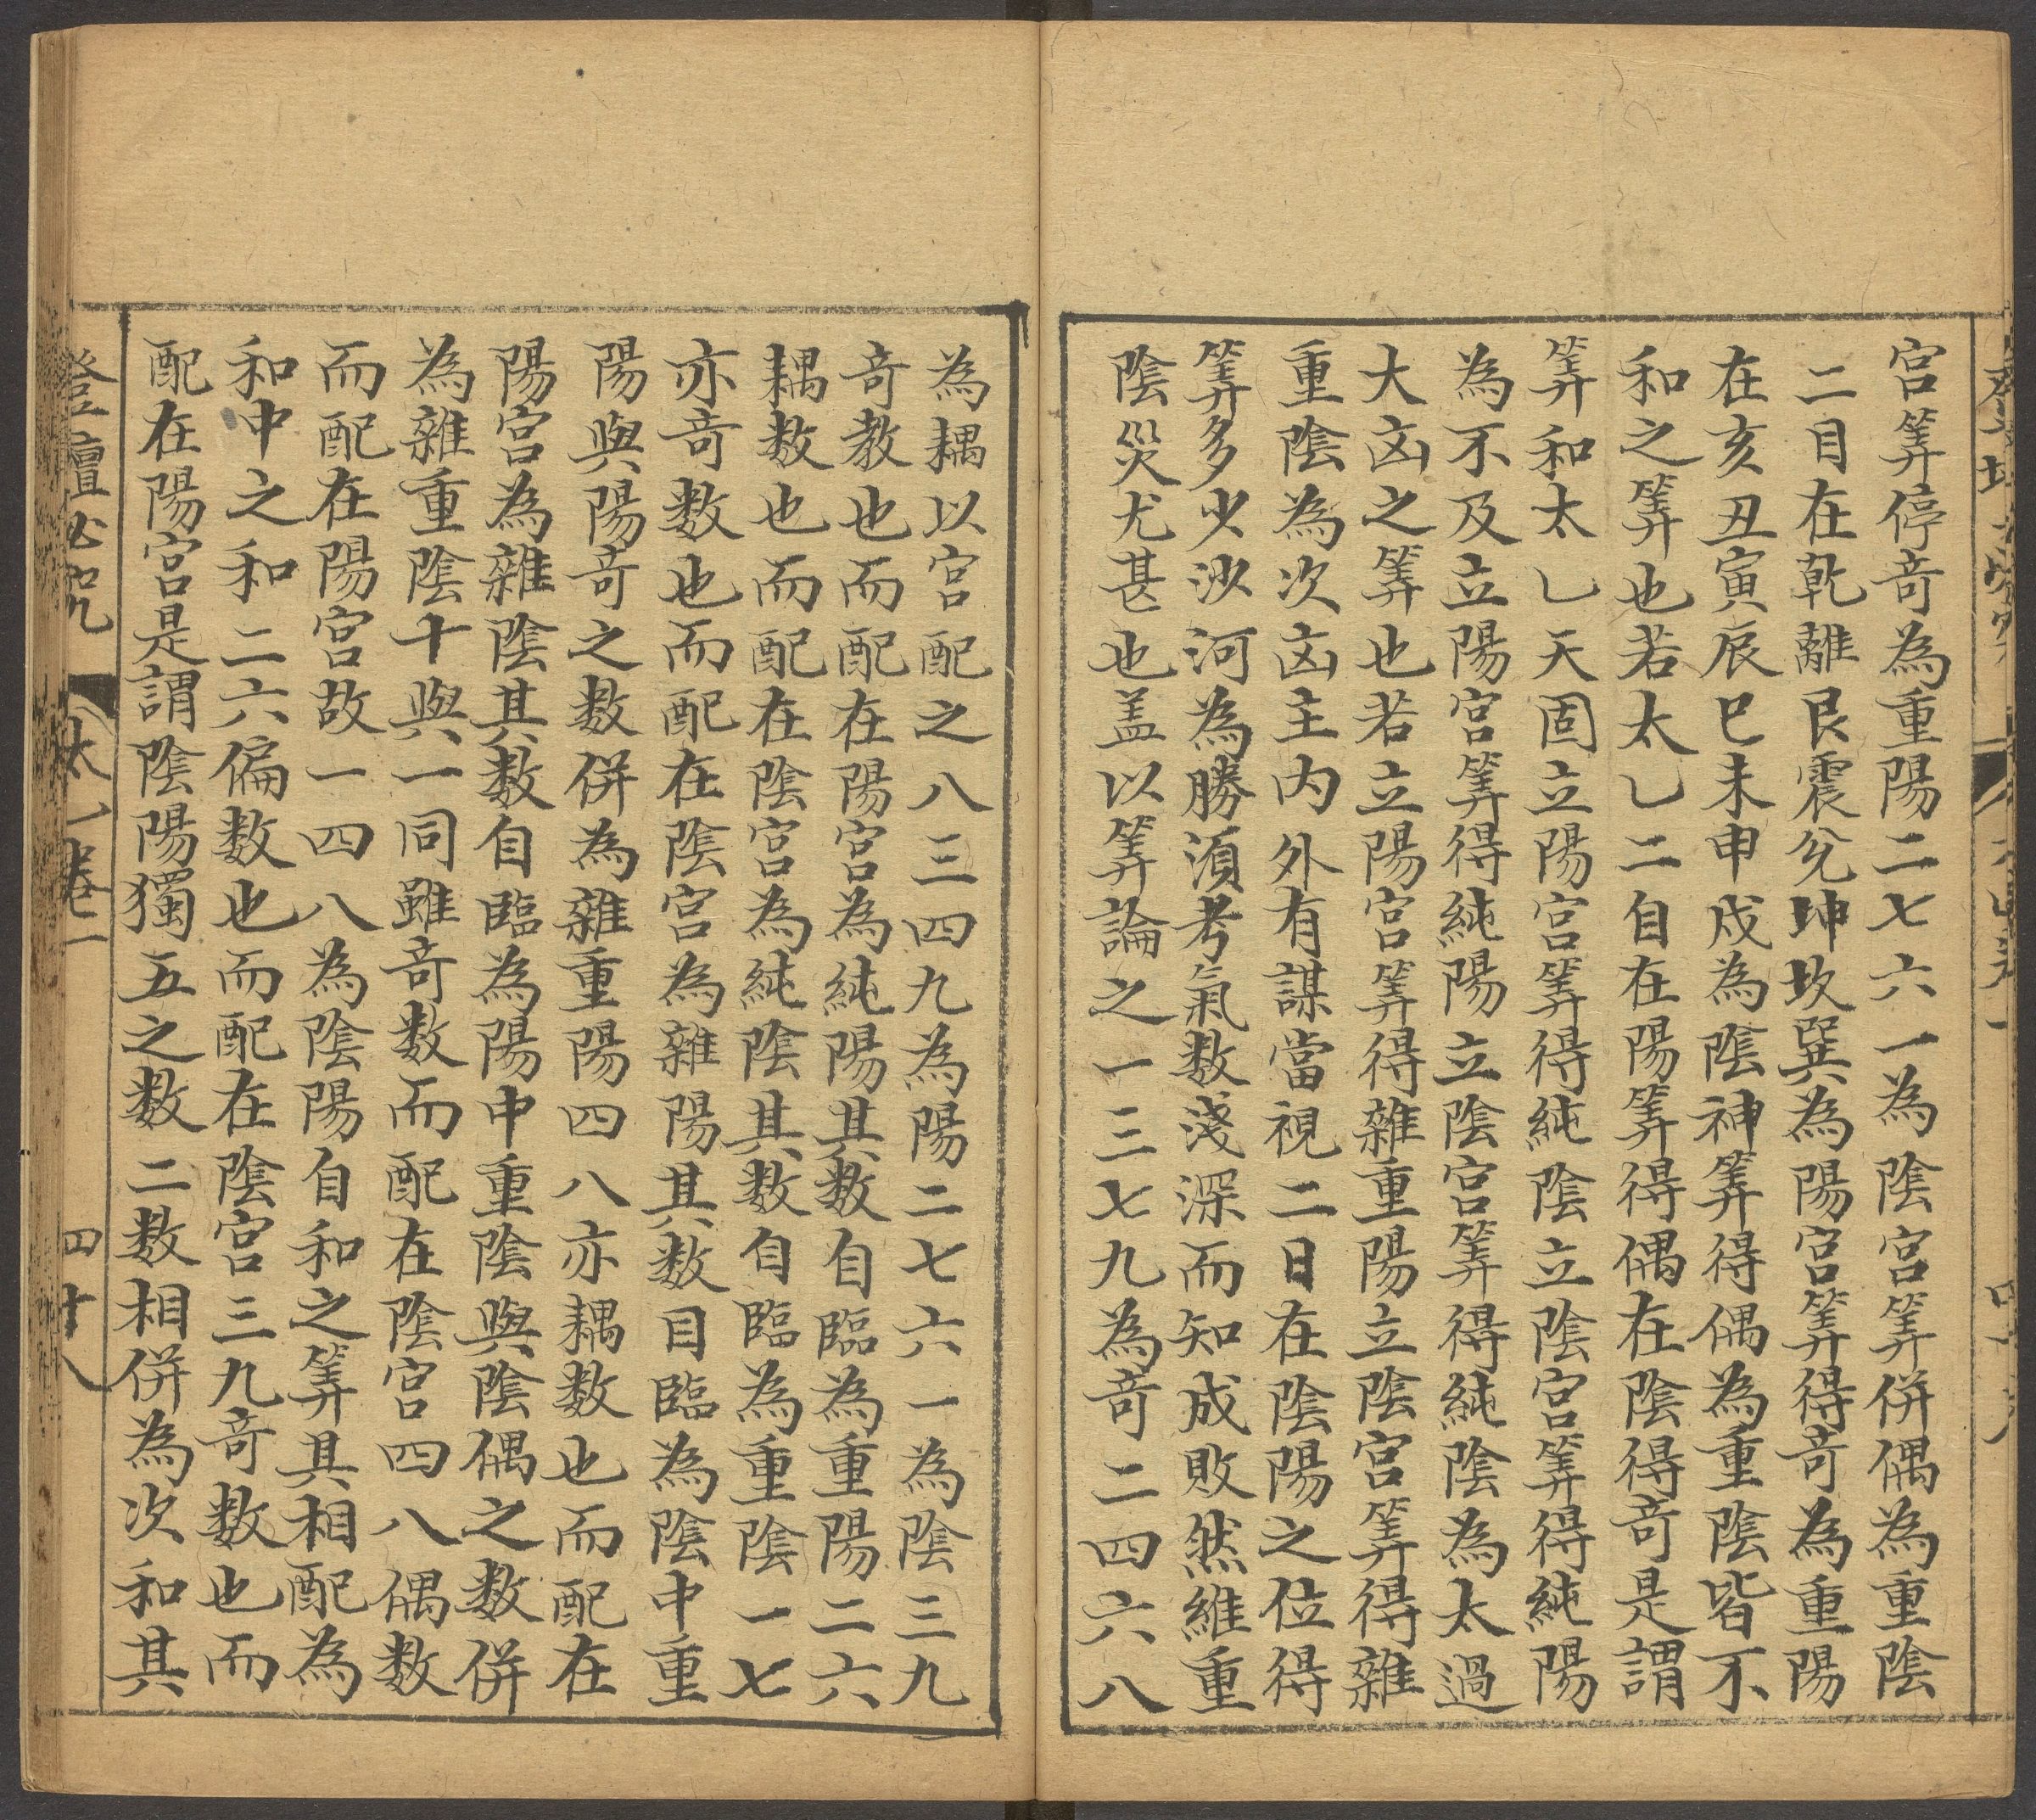 宮筭停竒為重陽二七六一為陰宮筭併偶為重陰
二目在乾離艮震兊坤坎巽為陽宮筭得竒為重陽
在亥丑寅辰巳未申戍為陰神筭得偶為重陰皆不
和之筭也若太乚二自在陽筭得偶在陰得竒是謂
筭和太乚天固立陽宮筭得純陰立陰宮筭得純陽
為不及立陽宮筭得純陽立陰宮筭得純陰為太過
大凶之筭也若立陽宮筭得雜重陽立陰宮筭得雜
重陰為次凶主内外有謀當視二日在陰陽之位得
筭多少沙河為勝湏考氣数淺深而知成敗然維重
陰災尤甚也盖以筭論之一三七九為竒二四六八
為耦以宮配之八三四九為陽二七六一為陰三九
竒教也而配在陽宮為純陽其数自臨為重陽二六
耦数也而配在陰宮為純陰其数自臨為重陰一七
亦竒数也而配在陰宮為雜陽其数目臨為陰中重
陽與陽竒之数併為雜重陽四八亦耦数也而配在
陽宮為雜陰其数自臨為陽中重陰與陰偶之数併
為雜重陰十與一同雖竒数而配在陰宮四八偶数
而配在陽宮故一四八為陰陽自和之筭其相配為
和中之和二六偏数也而配在陰宮三九竒数也而
配在陽宮是謂陰陽獨五之数二数相併為次和其
登壇必究
太乙卷二
四十八